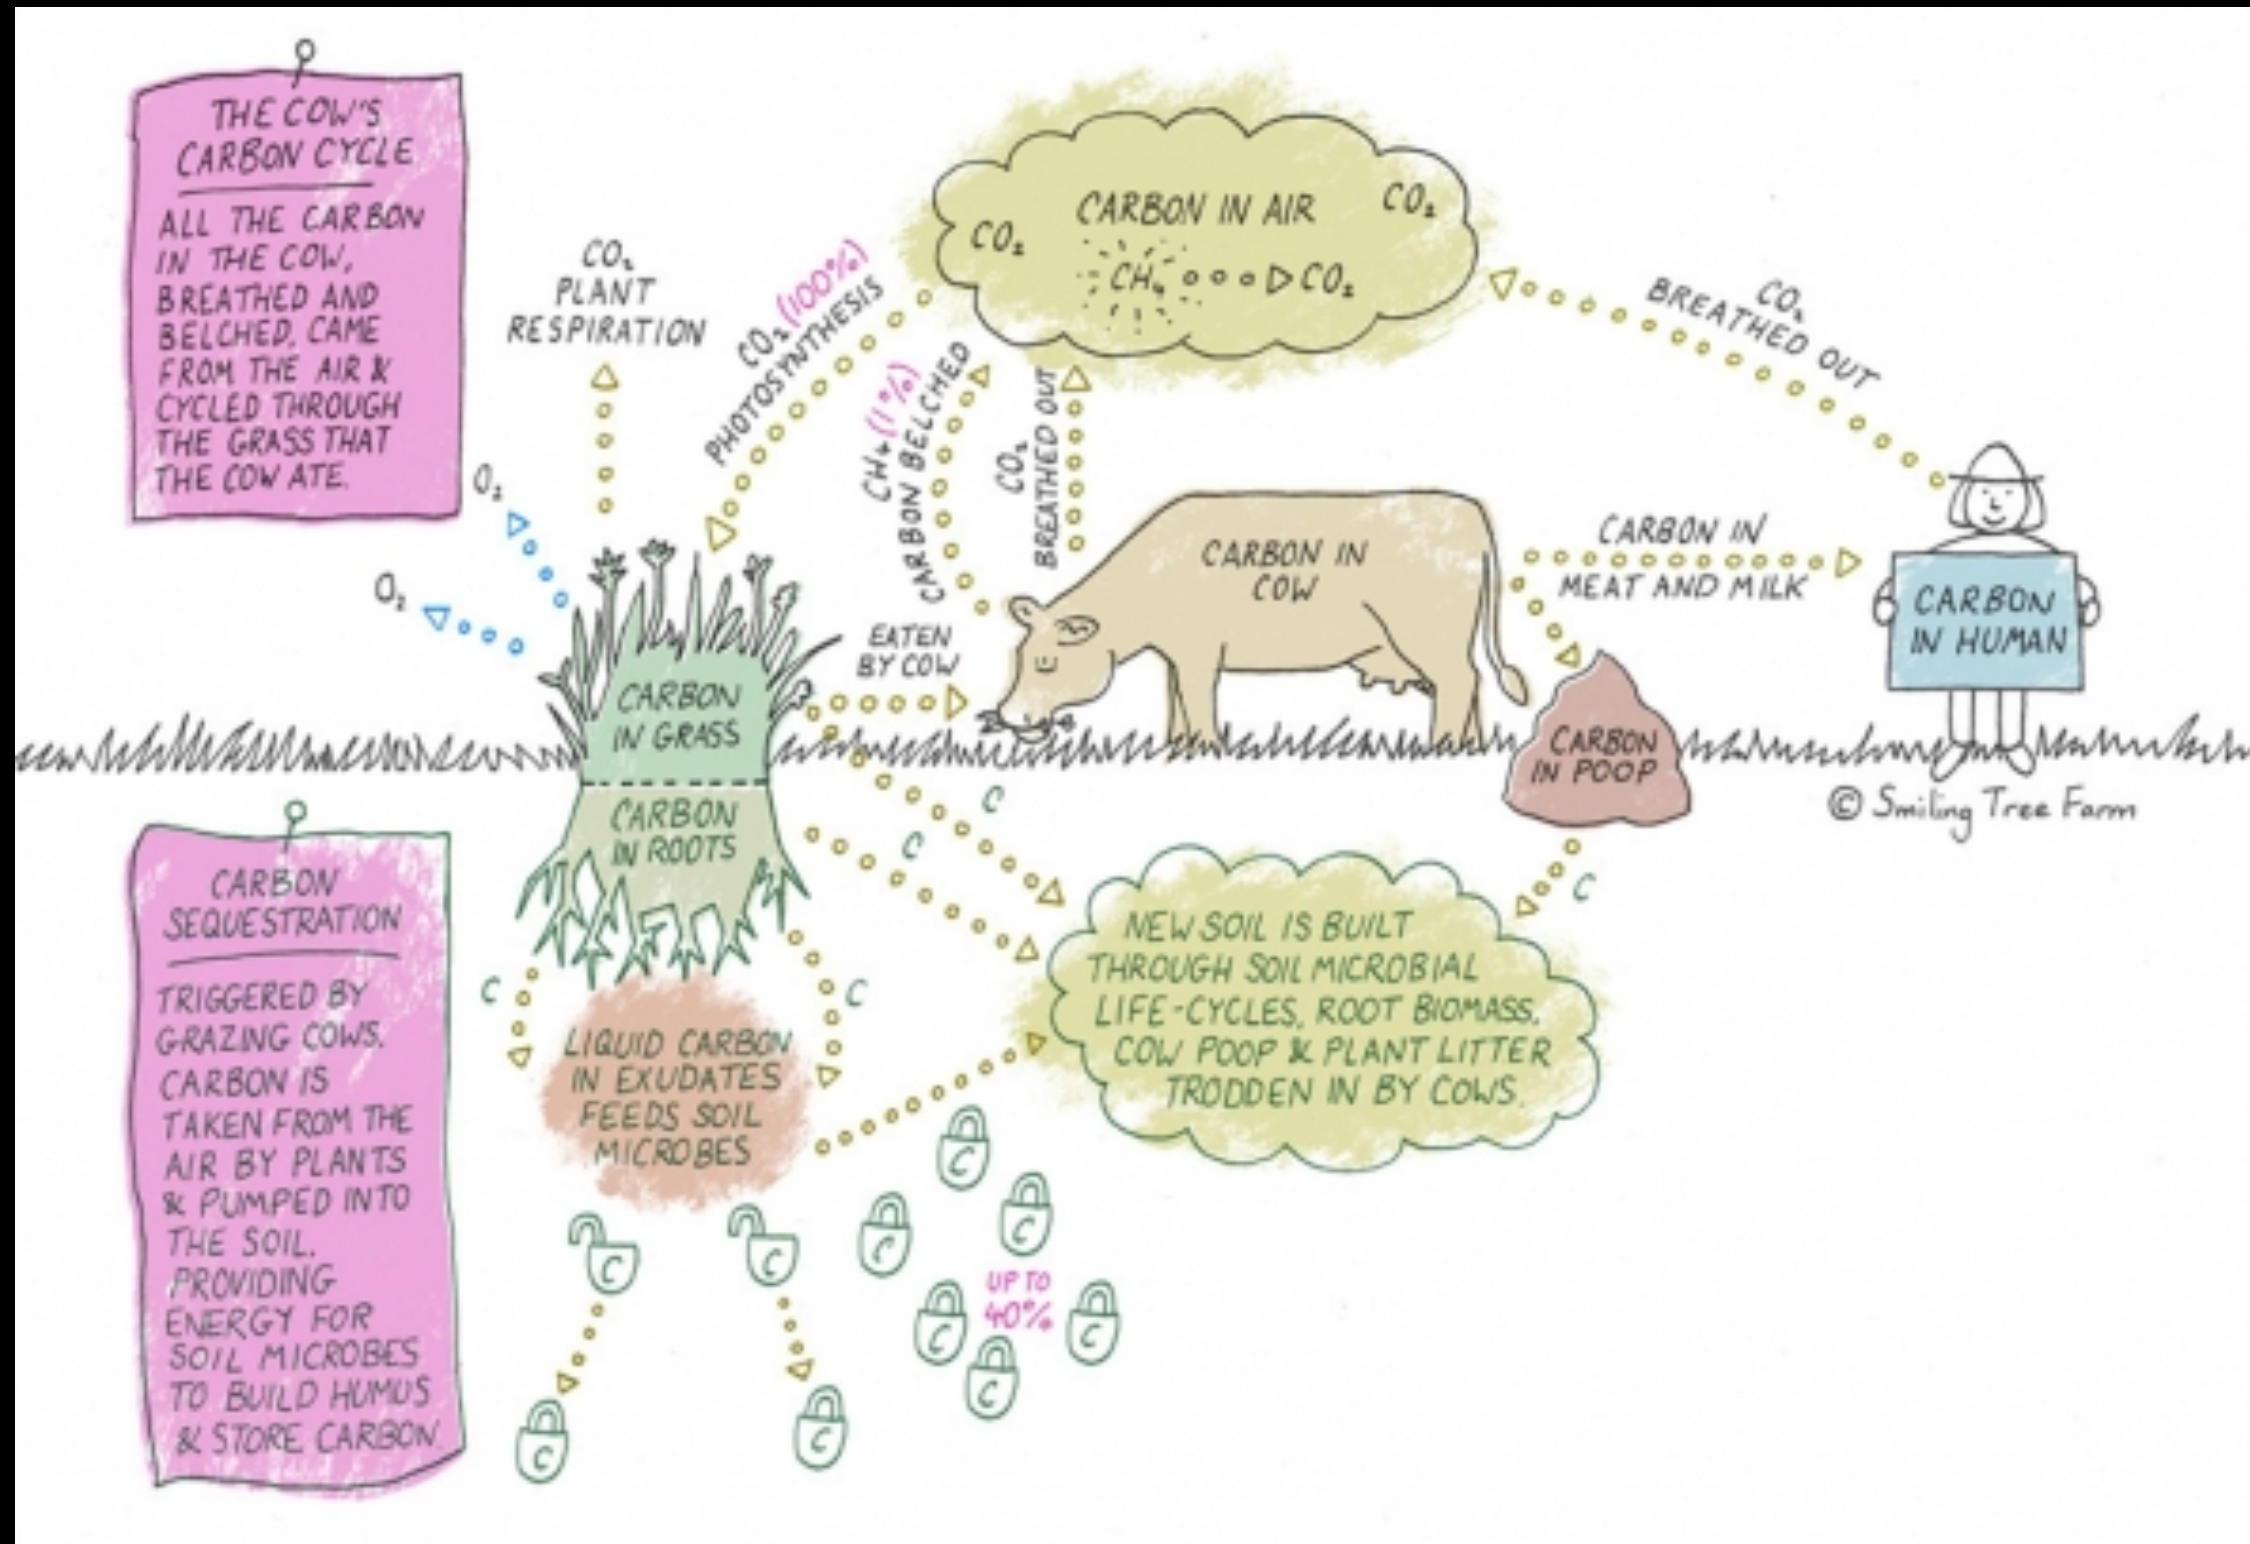 THE COW'S
CARBON CYCLE
ALL THE CARBON
IN THE COW,
BREATHED AND
BELCHED, CAME
FROM THE AIR &
CYCLED THROUGH
THE GRASS THAT
THE COW ATE.
CO₂
PLANT
RESPIRATION
O₂
O₂
CO₂ (100%)
PHOTOSYNTHESIS
CARBON IN AIR
CO₂
CO₂
CH₄
CO₂
CH₄ (1%)
CARBON BELCHED
CO₂
BREATHED OUT
CO₂
BREATHED OUT
EATEN
BY COW
CARBON IN
COW
CARBON IN
MEAT AND MILK
CARBON
IN HUMAN
CARBON
IN GRASS
CARBON
IN POOP
© Smiling Tree Farm
CARBON
IN ROOTS
C
C
C
C
C
CARBON
SEQUESTRATION
TRIGGERED BY
GRAZING COWS.
CARBON IS
TAKEN FROM THE
AIR BY PLANTS
& PUMPED INTO
THE SOIL.
PROVIDING
ENERGY FOR
SOIL MICROBES
TO BUILD HUMUS
& STORE CARBON.
LIQUID CARBON
IN EXUDATES
FEEDS SOIL
MICROBES
NEW SOIL IS BUILT
THROUGH SOIL MICROBIAL
LIFE-CYCLES, ROOT BIOMASS,
COW POOP & PLANT LITTER
TRODDEN IN BY COWS.
C
C
C
C
C
UP TO
40%
C
C
C
C
C